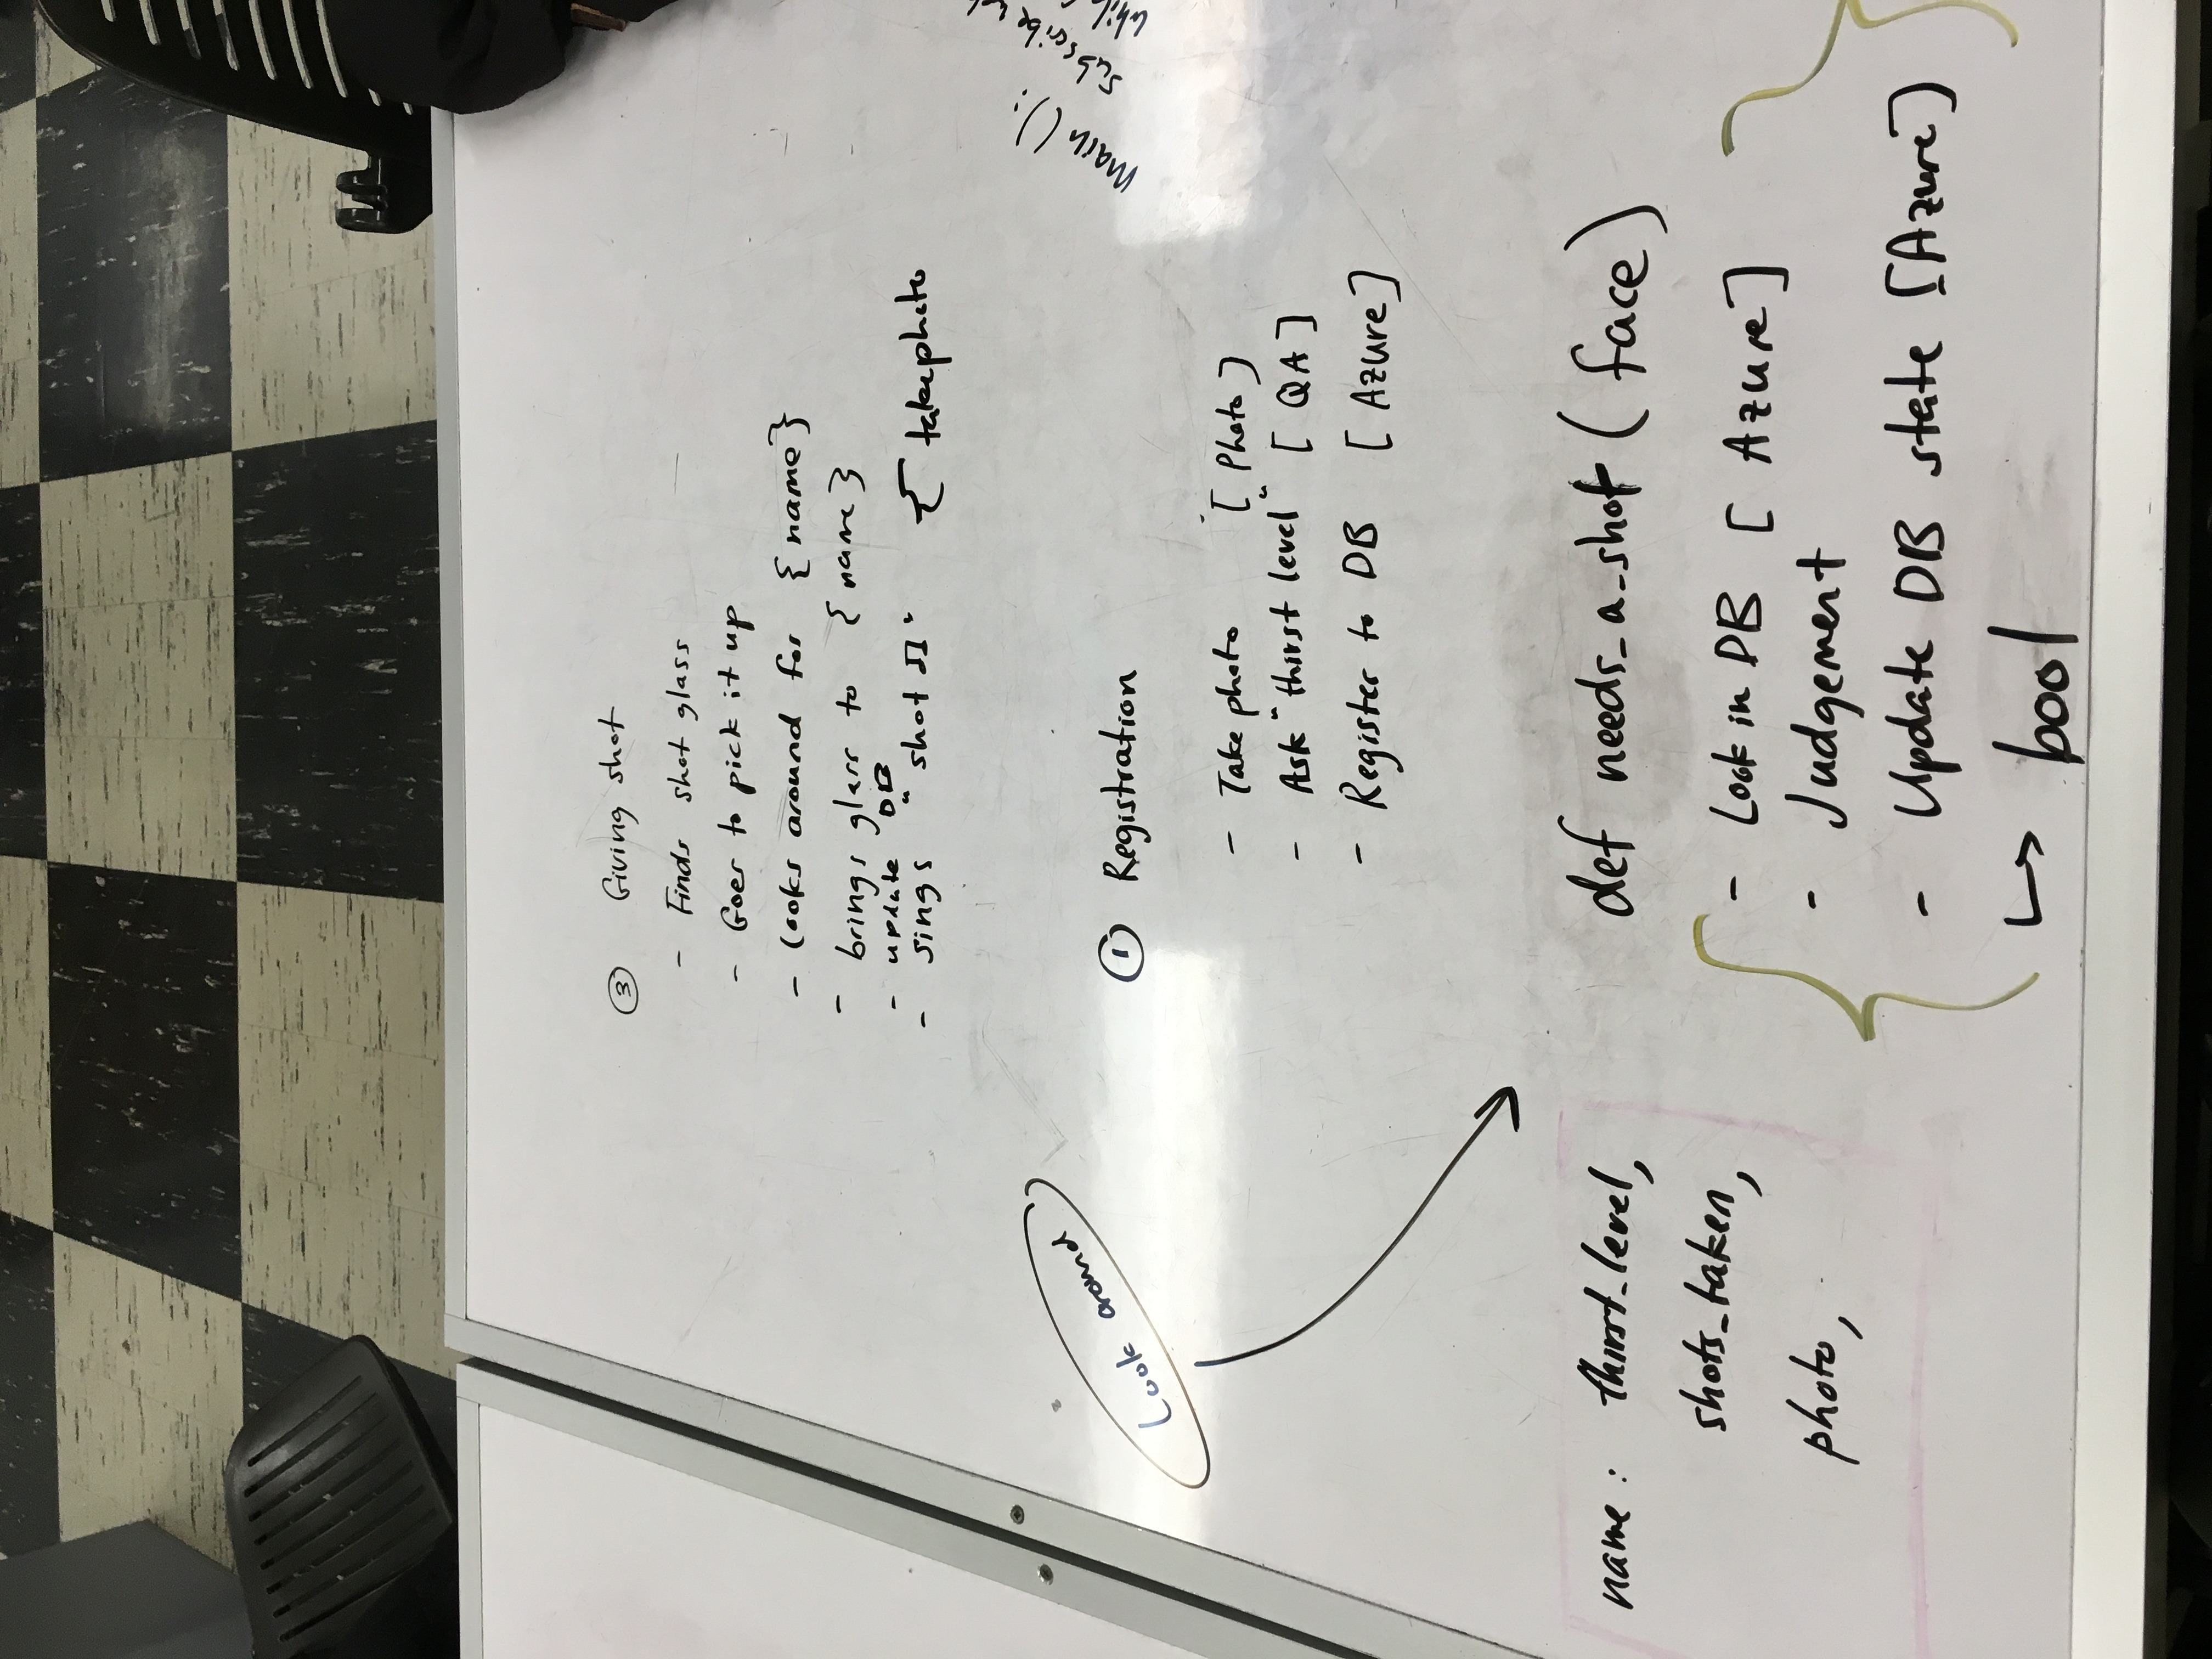 ③ Giving shot
- Finds shot glass
- Goes to pick it up
- Looks around for {name}
- brings glass to {name}
- update DB
- sings "shot Ω" { takephoto
① Registration
- Take photo [Photo]
- Ask "thirst level" [QA]
- Register to DB [Azure]
main():
subscribe
Look around
def needs_a_shot (face)
- Look in DB [Azure]
- Judgement
- Update DB state [Azure]
↳ bool
name: thirst_level,
shots_taken,
photo,